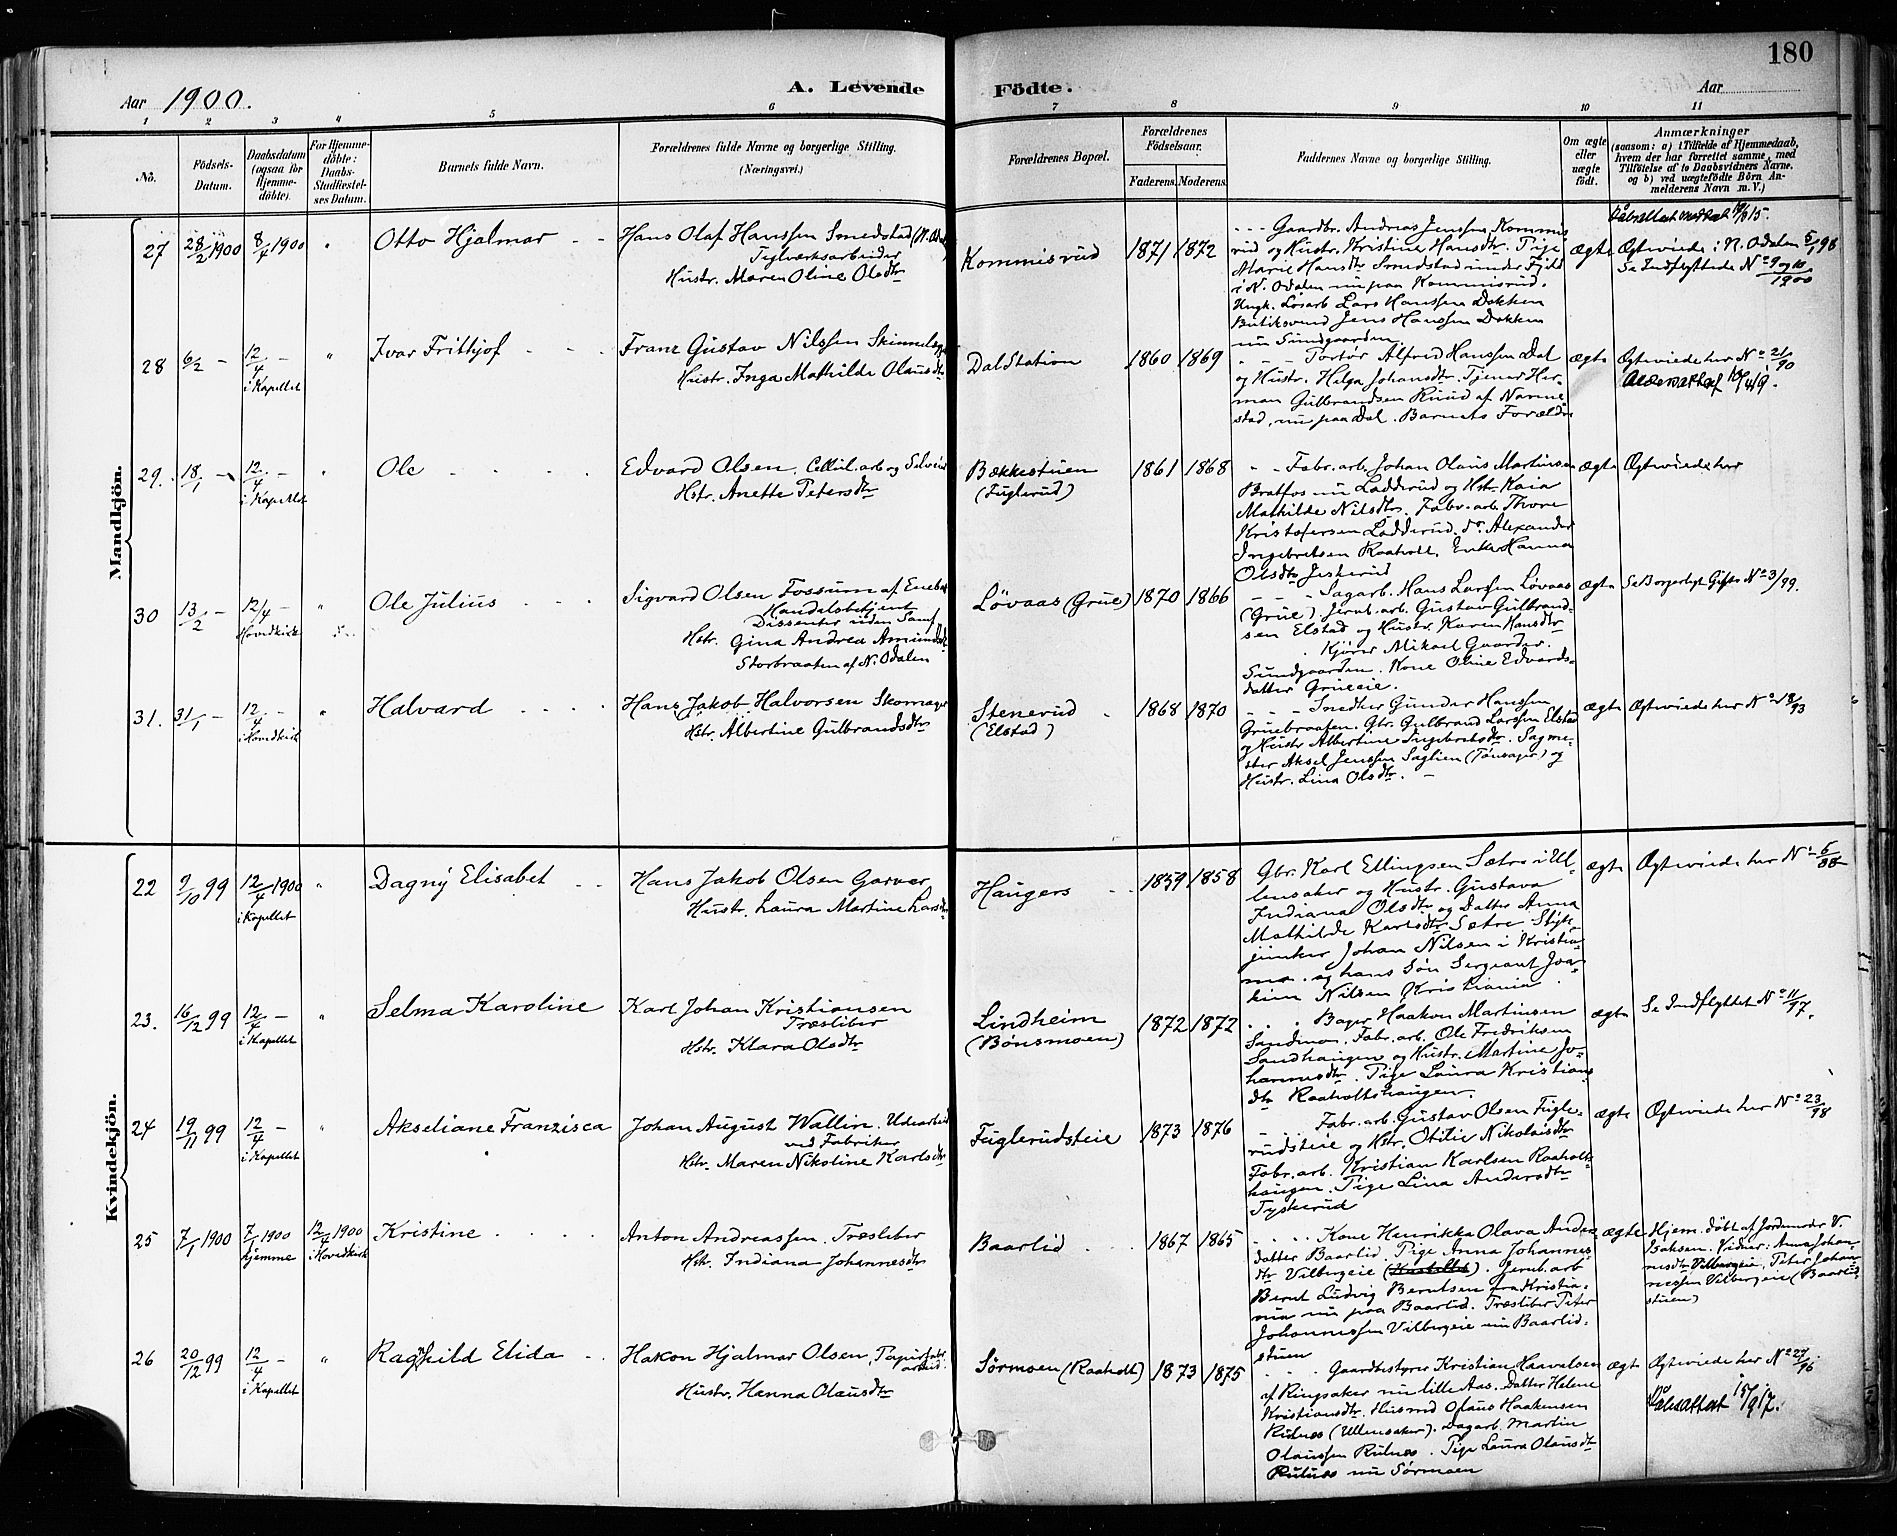 180
Aar 1900.
A. Levende Födte.
Aar
1 2 3 4 5 6 7 8 9 10 11
No.
Födsels-
Datum.
Daabsdatum
(ogsaa for
Hjemme-
döbte).
For Hjemme-
döbte:
Daabs-
Stadfæstel-
ses Datum.
Barnets fulde Navn.
Forældrenes fulde Navne og borgerlige Stilling.
(Næringsvei.)
Forældrenes Bopæl.
Forældrenes
Födselsaar.
Faderens. Moderens.
Faddernes Navne og borgerlige Stilling.
Om ægte
eller
uægte
födt.
Anmærkninger
(saasom: a) i Tilfælde af Hjemmedaab,
hvem der har forrettet samme, med
Tilföielse af to Daabsvidners Navne.
og b) ved uægtefödte Börn An-
melderens Navn m. V.)
Mandkjön.
27 28/2 1900 8/4 1900 " Otto Hjalmar
Hans Olaf Hanssen Smedstad (N. Odal)
Teglværksarbeider
Hustr. Maren Oline Olsdtr
Kommisrud 1871 1872
Gaardbr. Andreas Jenssen Kommis
rud og Hustr. Kristine Hansdtr. Pige
Marie Hansdtr Smedstad under Fjeld
i N. Odalen nu paa Kommisrud.
Ungk. Løsarb Lars Hanssen Dokken
Butiksvend Jens Hanssen Dokken
nu Sundgaarden.
ægte
Ægteviede i N. Odalen 5/1 98
Se Indflyttede No 9 og 10
1900
28 6/2 - 12/4 - " Ivar Frithjof
i Kapellet
Franz Gustav Nilssen
Hustr. Inga Mathilde Olausdtr
Dal Station 1860 1869
Alfred Hanssen Dal
og Hustr. Helga Johansdtr. Tjener Her-
man Gulbrandsen Ruud af Nanne
stad, nu paa Dal. Barnets Forældre
ægte Ægteviede her No 21/90
29. 18/1 - 12/4 - " Ole
i Kapellet
Edvard Olsen, Cellul. arb og Selveier
Hstr. Anette Petersdtr
Bækkestuen
(Fuglerud)
1861 1868
Fabr. arb. Johan Olaus Martinsen
Bratfos nu Ladderud og Hstr. Kaia
Mathilde Nilsdtr. Fabr. arb. Thore
Kristofersen Ladderud. do. Alexander
Ingebretsen Raaholt. Enke Hanna
Olsdtr Jeskerud
ægte Ægteviede her
30 13/2 - 12/4 - " Ole Julius
Hovedkirk
Sigvard Olsen Fossum af Enebak
Handelsbetjent
Dissenter uden Samf.
Hstr. Gina Andrea Amundsdtr
Storbraaten af N. Odalen
Løvaas (Grue) 1870 1866
Sagarb. Hans Larssen Løvaas
(Grue) Jernb. arb. Gustav Gulbrand-
sen Elstad og Hustr. Karen Hansdtr
Kjører Mikael Gaarder.
Sundgaarden. Kone Oline Edvards-
datter Grueeie.
ægte Se Borgerligt Gifte No 3/99.
31. 31/1 - 12/4 - " Halvard
i Hovedkirk
Hans Jakob Halvorsen Skomager
Hstr. Albertine Gulbrandsdtr
Stenerud
(Elstad)
1868 1870
Snedker Gunder Hanssen
Gruebraaten. Gbr. Gulbrand Larssen Elstad
og Hustr Albertine Ingebretsdtr. Sagme-
ster Aksel Jenssen Saglien (Tønsager) og
Hustr. Lina Olsdtr.
ægte Ægteviede her No 18/93
Kvindekjön.
22 9/10 99 12/4 1900 " Dagny Elisabet
i Kapellet
Hans Jakob Olsen Garver
Hustr. Laura Martine Larsdtr
Haugers 1859 1858
Gbr. Karl Ellingsen Sætre i Ul-
lensaker og Hustr. Gustava
Indiana Olsdtr og Datter Anna
Mathilde Karlsdtr Sætre. Styk-
junker Johan Nilsen i Kristia-
nia og hans Søn Sergeant Joa-
kim Nilsen Kristiania.
ægte Ægteviede her No 5/88
23. 16/12 99 12/4 - " Selma Karoline
i Kapellet
Karl Johan Kristiansen
Træsliber
Hstr. Klara Olsdtr
Lindheim
(Bønsmoen)
1872 1872
Bager Haakon Martinsen
Sandmo. Fabr. arb. Ole Fredriksen
Sandhaugen og Hustr. Martine Jo-
hannesdtr. Pige Laura Kristians
dtr Raaholtshaugen.
ægte Se Indflyttet No 11/97.
24 19/11 99 12/4 - " Akseliane Franzisca
i Kapellet
Johan August Wallin. Udearbeid
ved Fabriker
Hstr. Maren Nikoline Karlsdtr
Fuglerudsteie 1873 1876
Fabr. arb. Gustav Olsen Fugle-
rudsteie og Hstr. Otilie Nikolaisdtr
Fabr. arb. Kristian Karlsen Raaholt-
haugen. Pige Lina Andersdtr
Tyskerud
ægte Ægteviede her No 23/98
25 7/1 1900 7/1 1900 12/4 1900 Kristine
hjemme i Hovedkirk
Anton Andreassen, Træsliber
Hstr. Indiana Johannesdtr
Baarlid 1867 1865
Kone Henrikka Olava Andrea
datter Baarlid. Pige Anna Johannes
dtr Vilbergeie. Jernb. arb
Bernt Ludvig Berntsen fra Kristia-
nia nu paa Baarlid. Træsliber Peter
Johannessen Vilbergeie nu Baarlid-
stuen
ægte
Hjem. døbt af Jordemoder V.
Baksen. Vidner: Anna Johan-
nesdtr Vilbergeie, Peter Johan-
nessen Vilbergeie (Baarlid
stuen)
26 20/12 99 12/4 - " Ragnhild Elida
i Kapellet
Hakon Hjalmar Olsen, Papirfabr
arbeid.
Hustr. Hanna Olausdtr
Sørmoen (Raaholt) 1873 1875
Gaardbestyrer Kristian Haavelsen
af Ringsaker nu lille Aas. Datter Helene
Kristiansdtr. Husmd Olaus Haakensen
Rulnes (Ullensaker). Dagarb. Martin
Olaussen Rulnes. Pige Laura Olausdtr
Rulnes nu Sørmoen
ægte Ægteviede her No 27/96